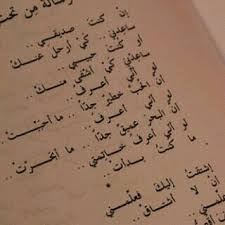 رسالة من تحـ
إن كنت صديقي..
ساعدني.. كي أرحل عنك
أو كنت حبيبي..
ساعدني.. كي أشفى منك..
لو أني أعرف
أن الحب خطير جداً.. ما أحببت
لو أني أعرف
أن البحر عميق جداً.. ما أبحرت..
لو أني أعرف خاتمتي..
ما كنت بدأت..
إشتقت إليك فعلمني
أن لا أشتاق..
علمني